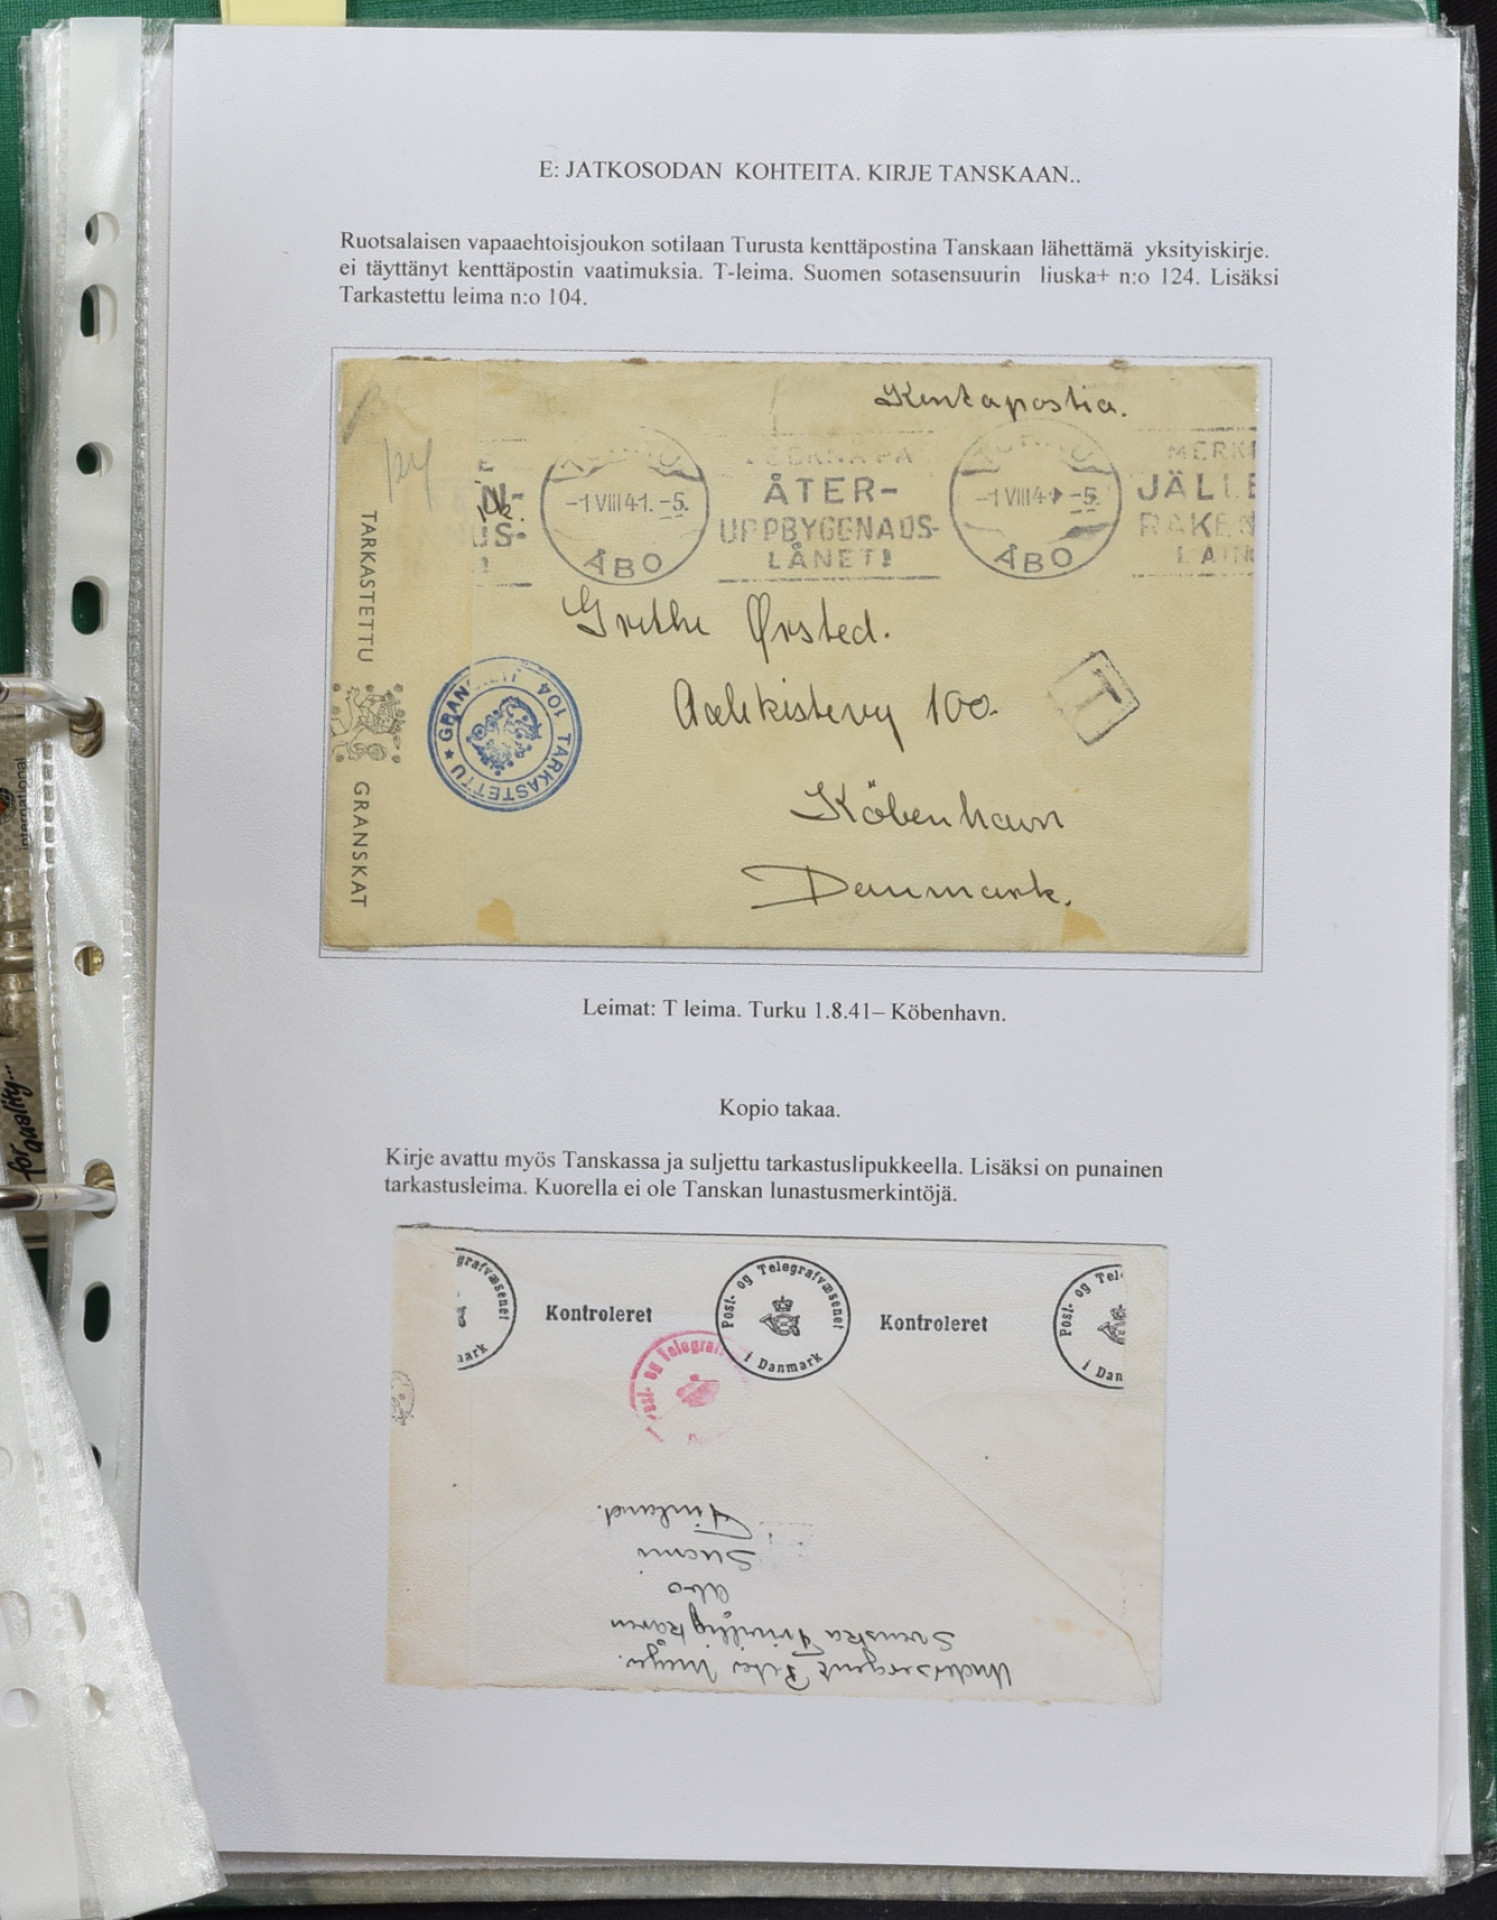 E: JATKOSODAN KOHTEITA. KIRJE TANSKAAN..
Ruotsalaisen vapaaehtoisjoukon sotilaan Turusta kenttäpostina Tanskaan lähettämä yksityiskirje.
ei täyttänyt kenttäpostin vaatimuksia. T-leima. Suomen sotasensuurin liuska+ n:o 124. Lisäksi
Tarkastettu leima n:o 104.
Kentapostia.
ÅTER-
UPPBYGGNADS-
LÅNET!
-1 VIII 41.-5.
ÅBO
-1 VIII 41 -5.
ÅBO
JÄLLE
TARKASTETTU
GRANSKAT
104 TARKASTETTU ★
T
Grethe Ørsted.
Aalekistevej 100.
Köbenhavn
Danmark.
Leimat: T leima. Turku 1.8.41– Köbenhavn.
Kopio takaa.
Kirje avattu myös Tanskassa ja suljettu tarkastuslipukkeella. Lisäksi on punainen
tarkastusleima. Kuorella ei ole Tanskan lunastusmerkintöjä.
grafvæsenet
Kontroleret
Post- og Telegrafvæsenet
i Danmark
Kontroleret
Post- og Tel
i Dan
og Telegraf
Undersergent Peter
Svenska Frivilligkåren
Åbo
Suomi
Finland.
international
for quality...